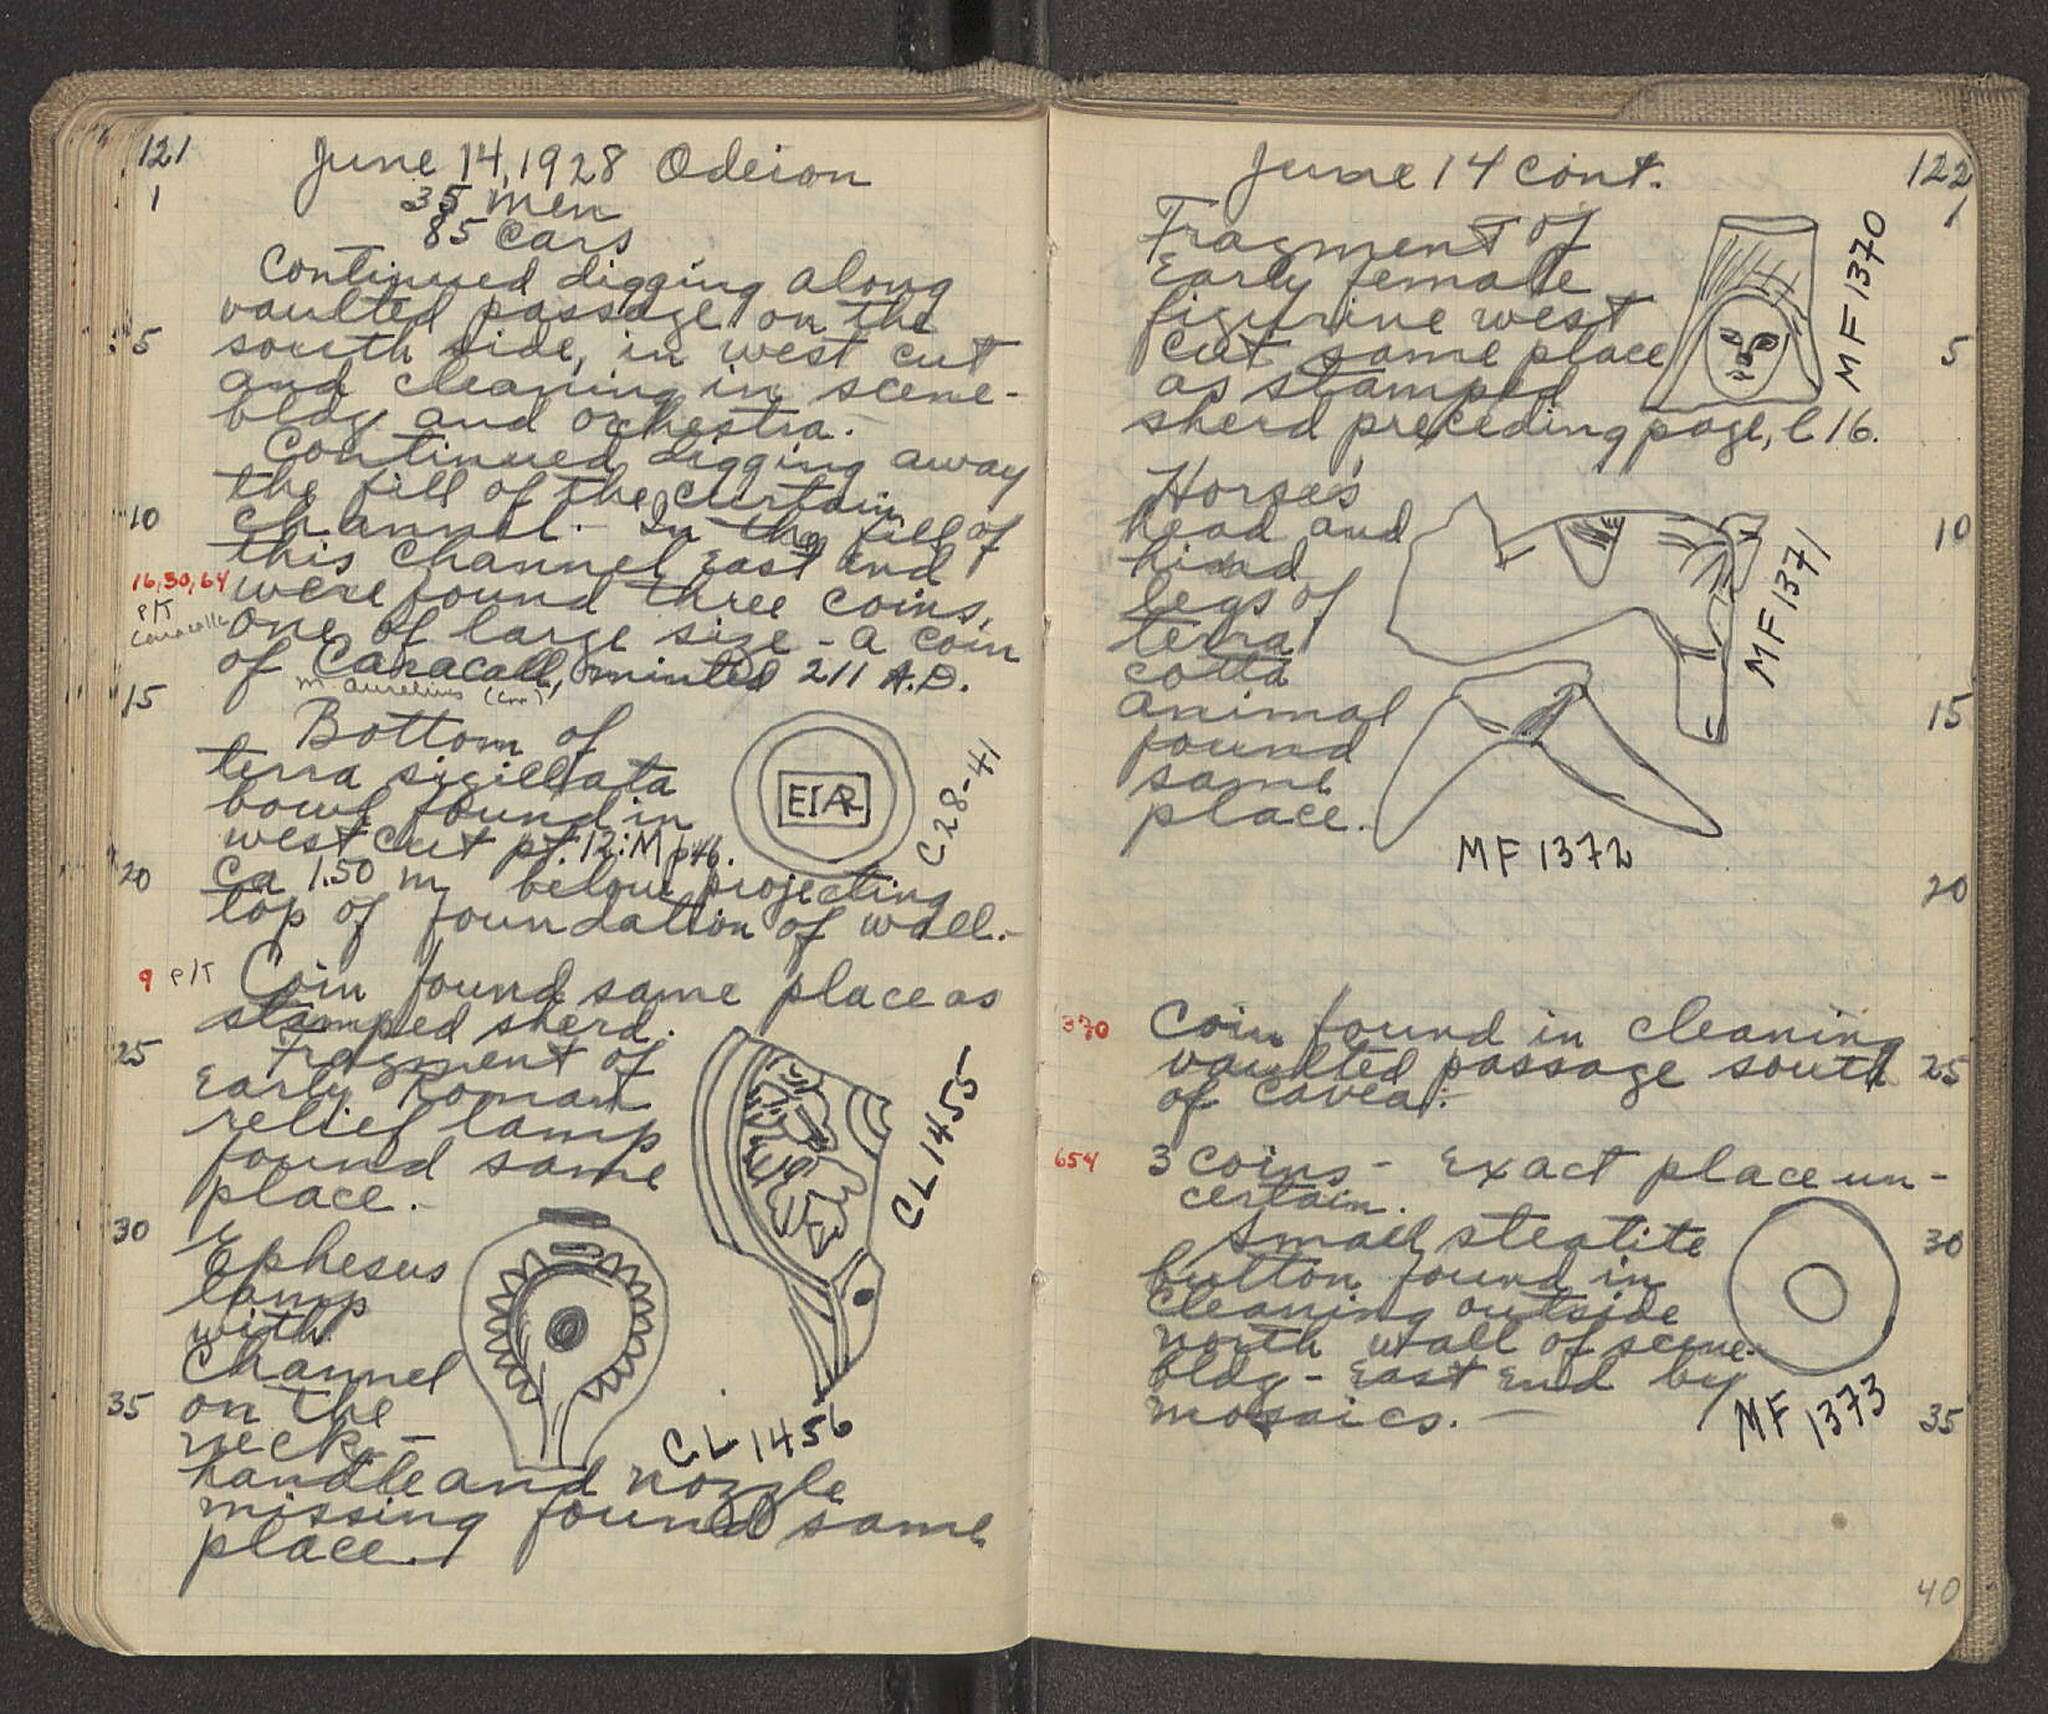 121
June 14, 1928 Odeion
1
35 men
85 cars
Continued digging along
vaulted passage on the
5
south side, in west cut
and cleaning in scene-
bldg and orchestra.-
Continued digging away
the fill of the curtain
10
channel.- In the fill of
this channel east end
16,30,64
were found three coins,
P/T
Caracalla
one of large size - a coin
of Caracall, minted 211 A.D.
M Aurelius
15
Bottom of
terra sigillata
bowl found in
west cut pt. 12:M p46.
EIAR
C28-41
20
ca 1.50 m below projecting
top of foundation of wall.-
9 P/T
Coin found same place as
stamped sherd.
25
Fragment of
Early Roman
relief lamp
found same
place.-
CL 1455
30
Ephesus
lamp
with
Channel
35
on the
neck -
CL 1456
handle and nozzle
missing found same
place.
June 14 cont.
122
1
Fragment of
Early female
figurine west
5
cut same place
as stamped
sherd preceding page, l 16.
MF 1370
Horse's
10
head and
hind
legs of
terra
cotta
15
animal
found
same
place.
MF 1371
MF 1372
20
370
Coin found in cleaning
25
vaulted passage south
of cavea.-
654
3 coins - Exact place un-
certain.
30
Small steatite
button found in
cleaning outside
north wall of scene-
bldg - East End by
35
mosaics. -
MF 1373
40